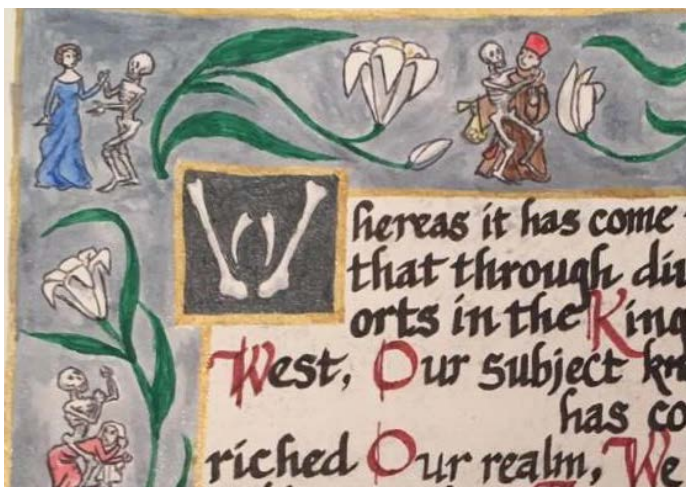 Whereas it has come
that through div
orts in the King
West, Our subject kn
has co
riched Our realm, We